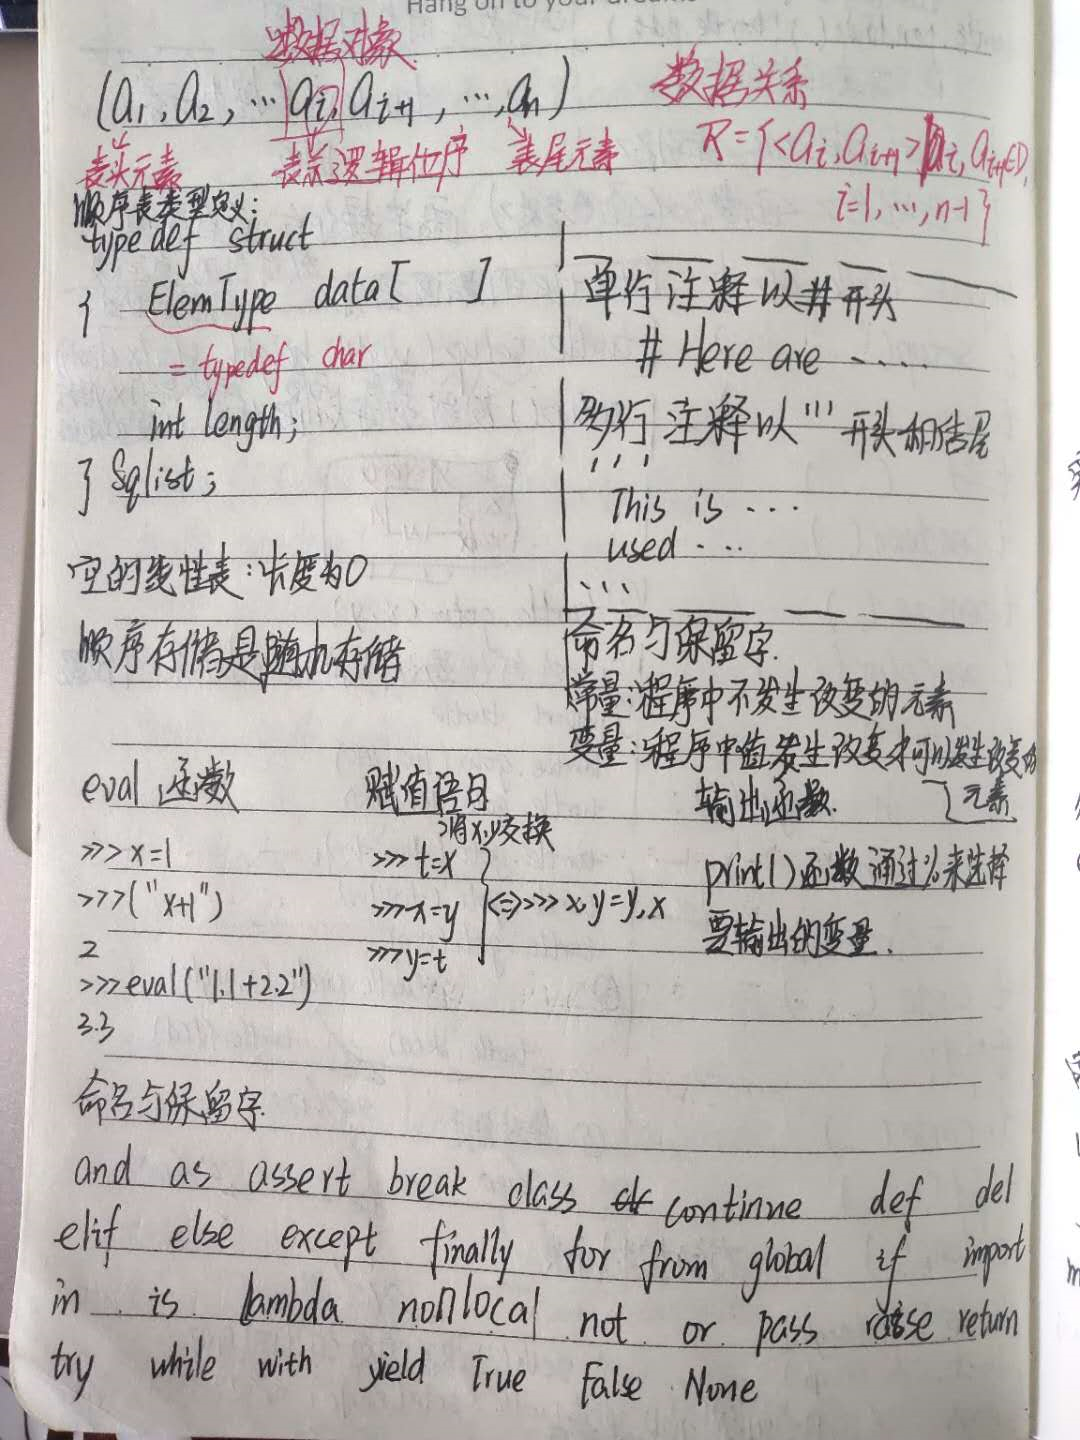 Hang on to your dreams
数据对象
(a1, a2, … ai, ai+1, …, an)
数据关系
表头元素 表示逻辑位序 表尾元素
R={<ai, ai+1>|ai, ai+1∈D,
i=1, …, n-1}
顺序表类型定义:
typedef struct
{ ElemType data[ ]
= typedef char
int length;
} Sqlist;
空的线性表:长度为0
顺序存储是随机存储
单行注释以#开头
# Here are ····
多行注释以'''开头和结尾
'''
This is ···
used ···
'''
命名与保留字.
常量:程序中不发生改变的元素
变量:程序中值发生改变或可以发生改变的
元素
eval 函数
>>> x=1
>>>("x+1")
2
>>>eval("1.1+2.2")
3.3
赋值语句
将x,y交换
>>> t=x
>>> x=y
>>> y=t
<=>>>> x,y=y,x
输出函数.
print()函数通过%来选择
要输出的变量.
命名与保留字.
and as assert break class continue def del
elif else except finally for from global if import
in is lambda nonlocal not or pass raise return
try while with yield True False None